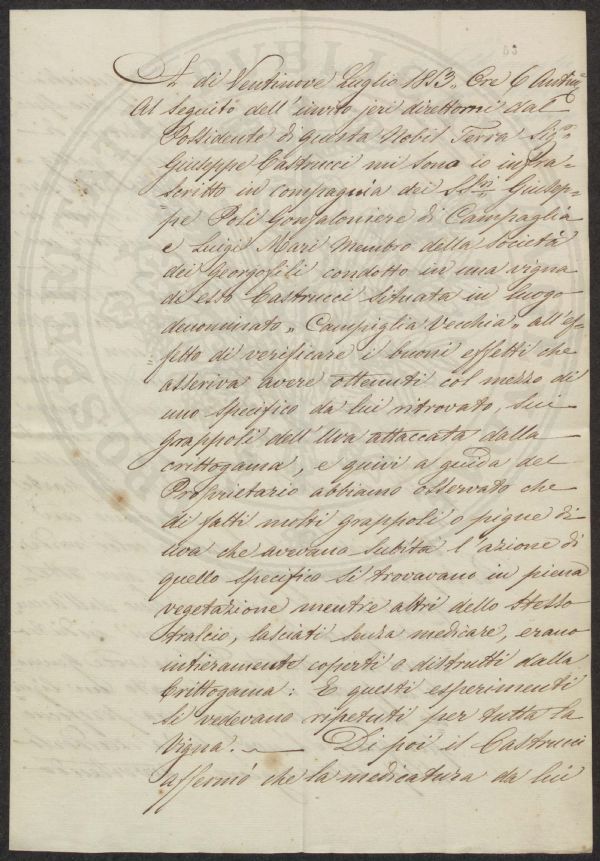 A dì Ventinove Luglio 1853. Ore 6 Antim.e
Al seguito dell'invito jeri direttomi dal
Possidente di questa Nobil Terra Sig.re
Giuseppe Castrucci mi sono io infra-
scritto in compagnia dei SS.ri Giusep-
pe Poli Gonfaloniere di Campiglia
e Luigi Mari Membro della Società
dei Georgofili condotto in una vigna
di esso Castrucci situata in luogo
denominato "Campiglia Vecchia" all'ef-
fetto di verificare i buoni effetti che
asseriva avere ottenuti col mezzo di
uno specifico da lui ritrovato, sui
grappoli dell'Uva attaccata dalla
crittogama, e quivi a guida del
Proprietario abbiamo osservato che
di fatti molti grappoli o pigne di
uva che avevano subita l'azione di
quello specifico si trovavano in piena
vegetazione mentre altri dello stesso
tralcio, lasciati senza medicare, erano
intieramente coperti o distrutti dalla
Crittogama: E questi esperimenti
si vedevano ripetuti per tutta la
Vigna. Di poi il Castrucci
affermò che la medicatura da lui